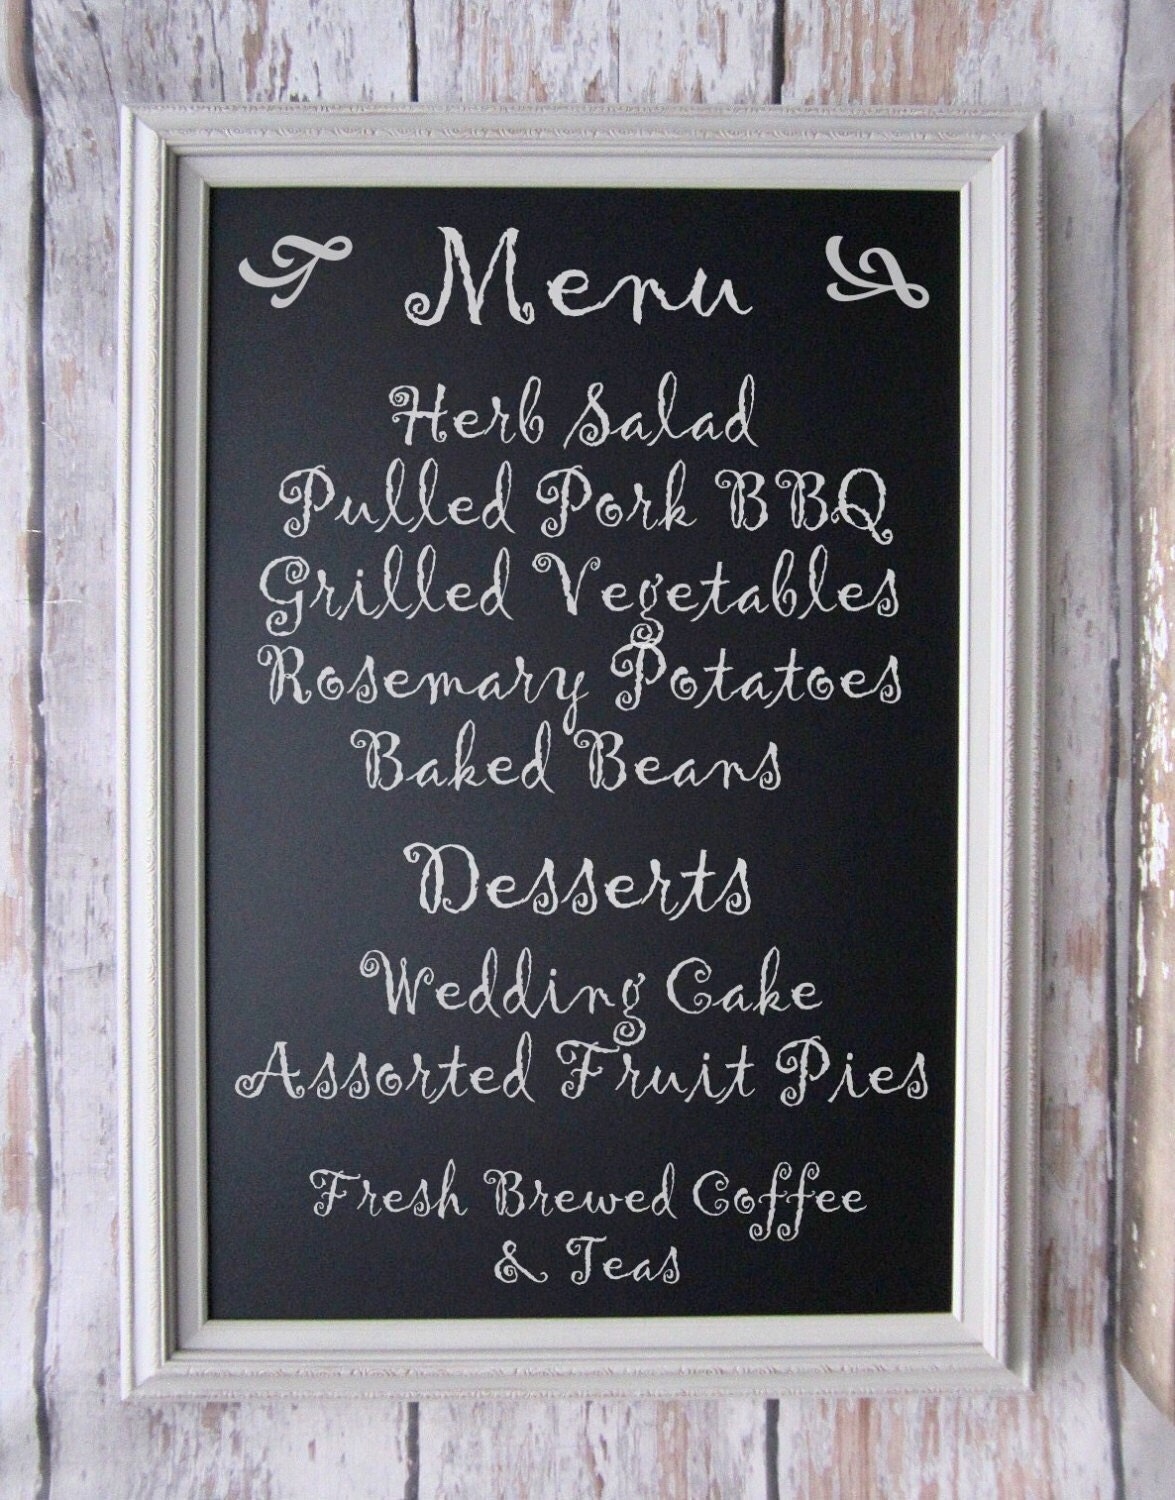 Menu
Herb Salad
Pulled Pork BBQ
Grilled Vegetables
Rosemary Potatoes
Baked Beans
Desserts
Wedding Cake
Assorted Fruit Pies
Fresh Brewed Coffee
& Teas